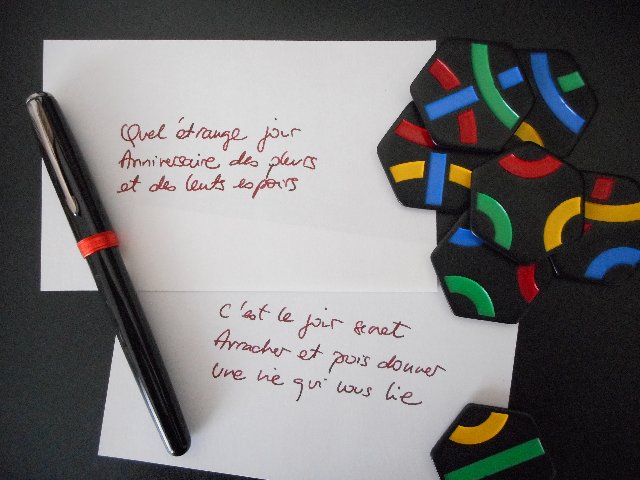 Quel étrange jour
Anniversaire des pleurs
et des lents espoirs
C'est le jour
Arracher et puis donner
Une vie qui vous lie